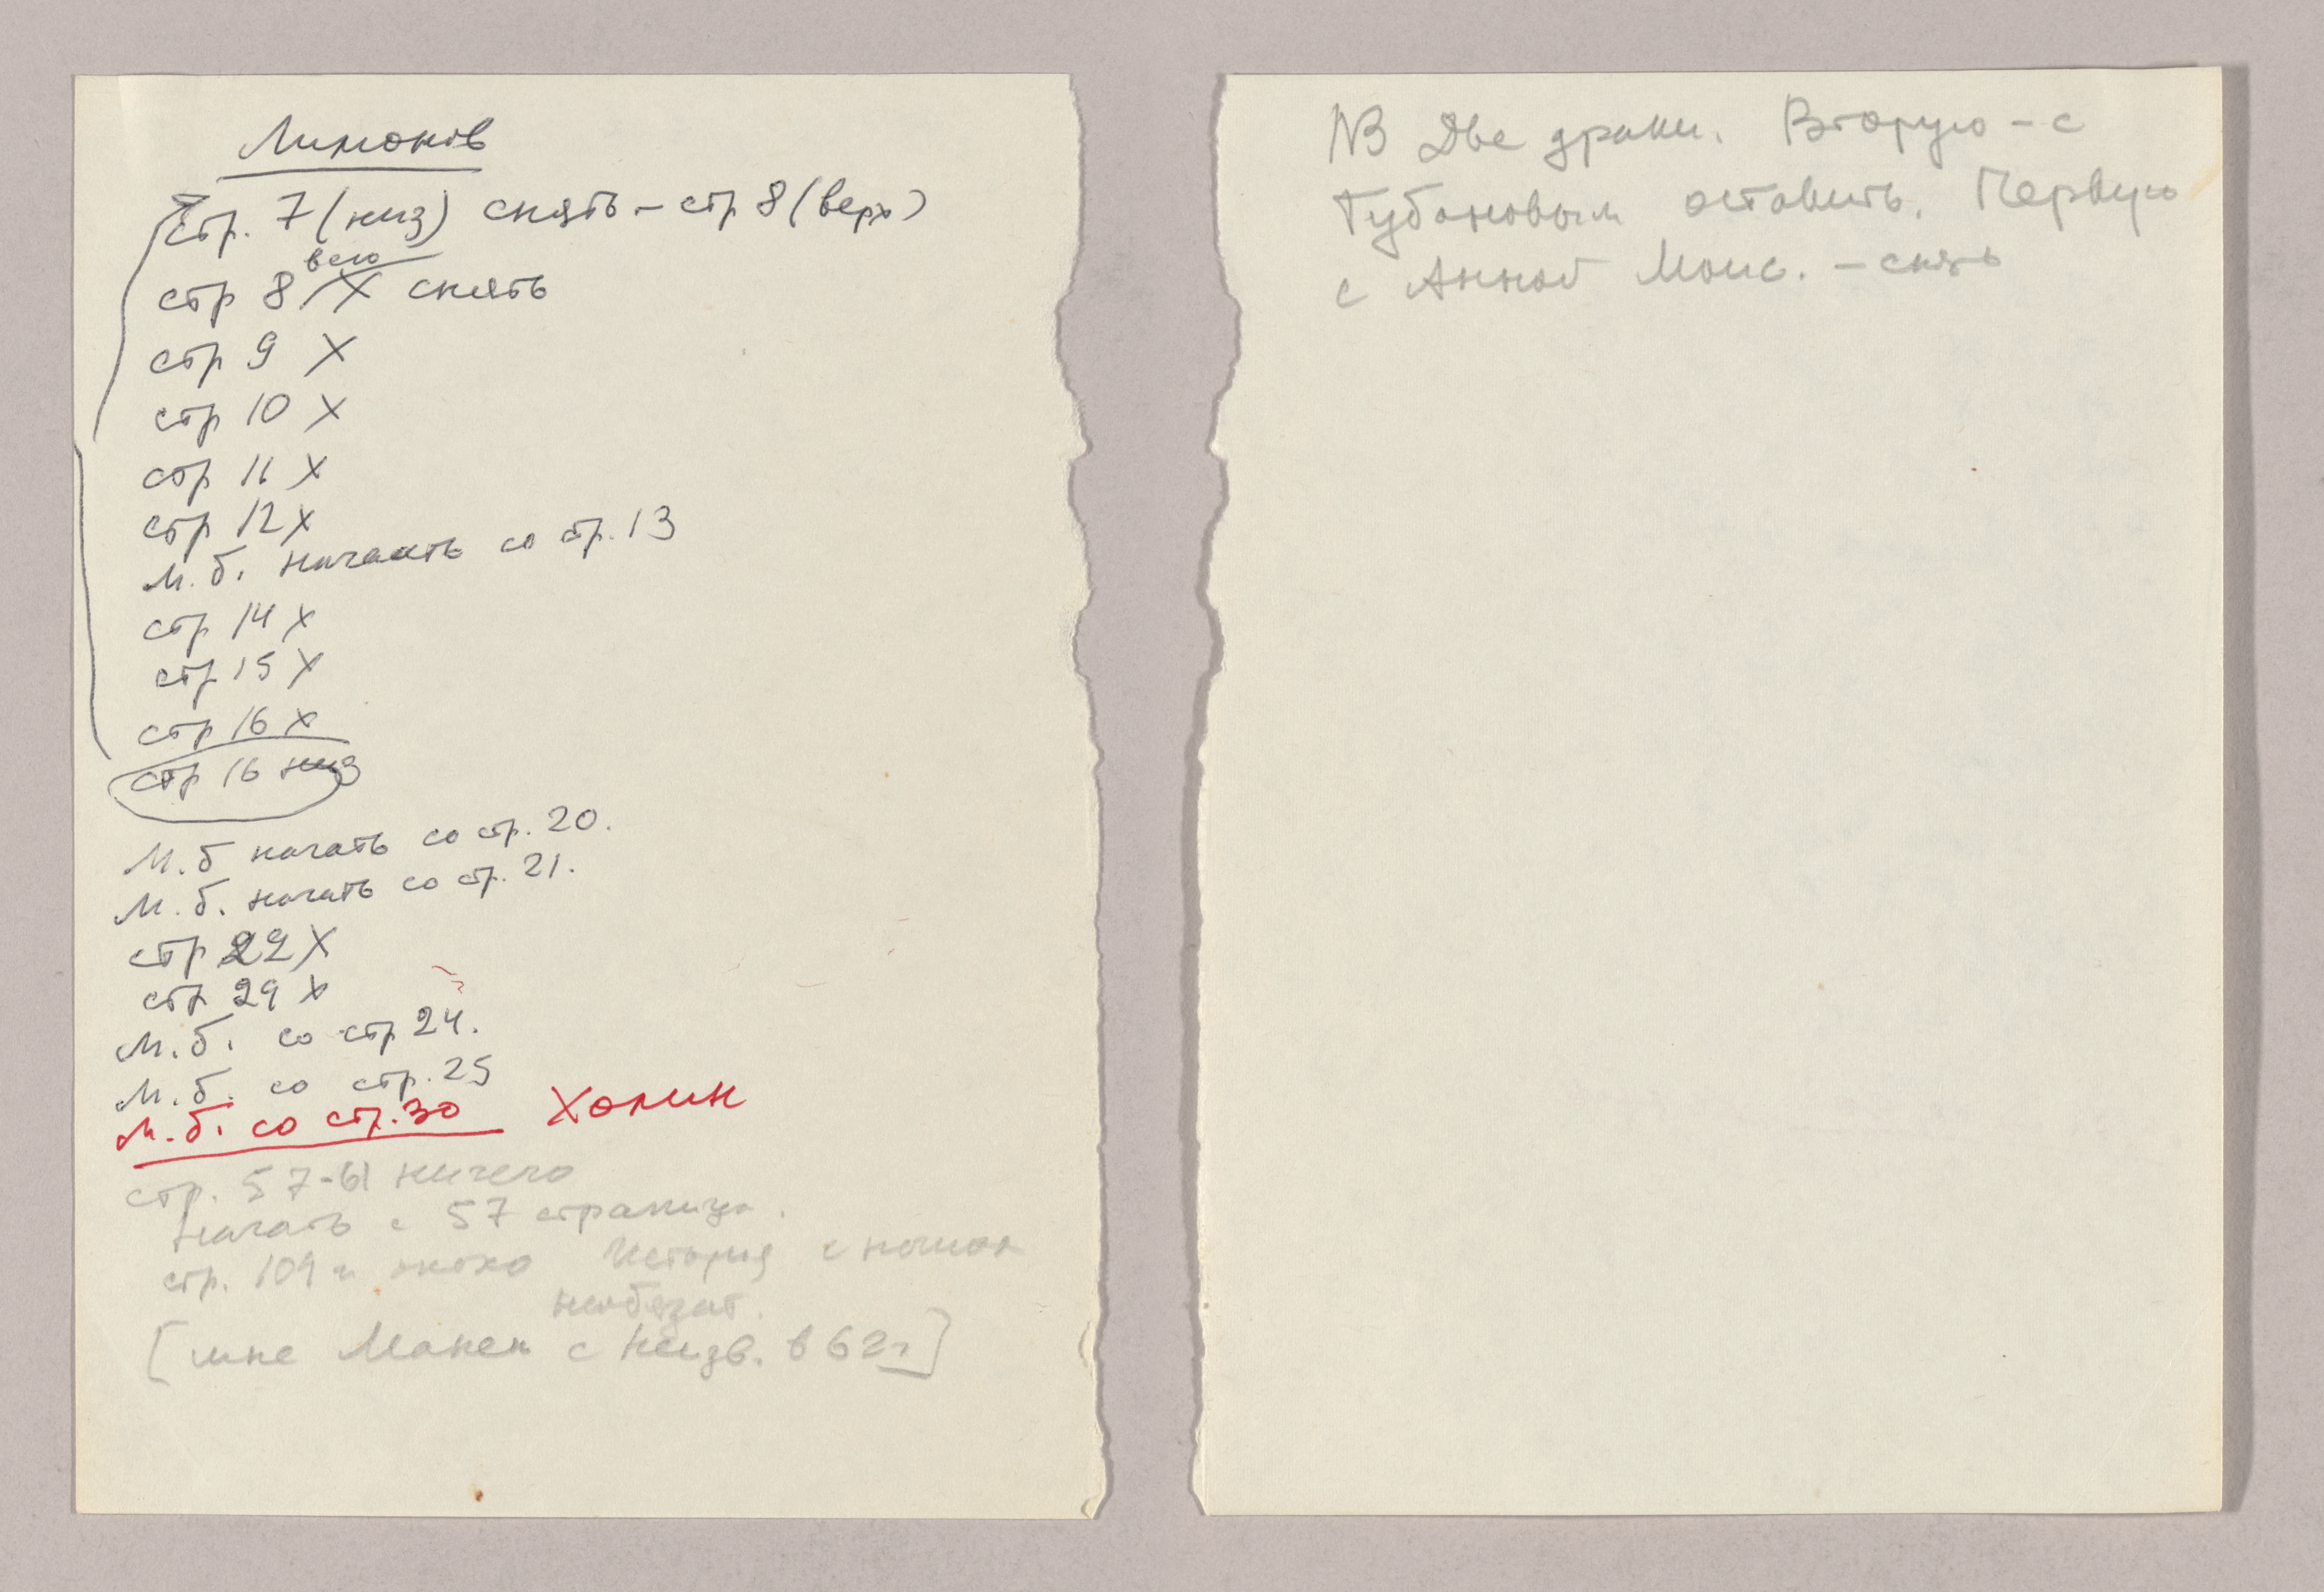 Лимонов
стр. 7 (низ) снять – стр 8 (верх)
всю
стр 8 X снять
стр 9 X
стр 10 X
стр 11 X
стр 12 X
М.б. начать со стр. 13
стр 14 X
стр 15 X
стр 16 X
стр 16 низ
М.б начать со стр. 20.
М.б. начать со стр. 21.
стр 22 X
стр 29 X
М.б. со стр 24.
М.б. со стр. 25
М.б. со стр. 30 Холин
стр. 57-61 ничего
Начать с 57 страницы.
стр. 109 История с
необязат.
[мне Манек с Неизв. в 62 г]
NB Две драки. Вторую – с
Губановым оставить. Первую
с Анной Моис. – снять